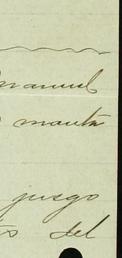 manuel
manta
jusgo
del